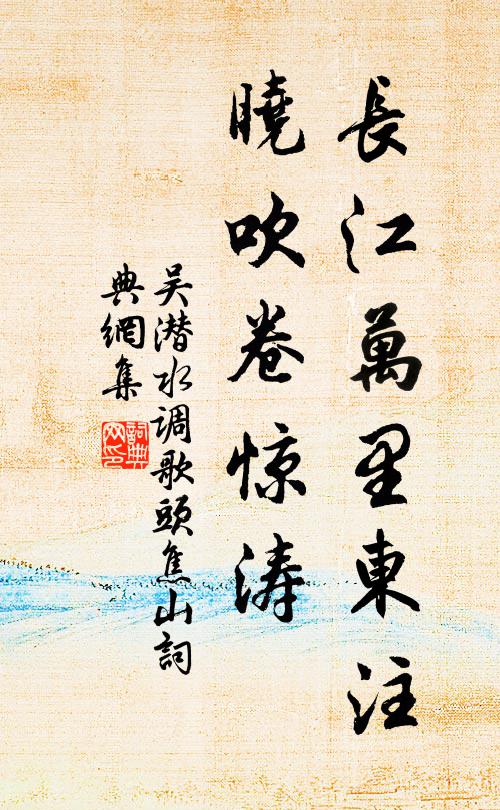 長江萬里東注
曉吹卷惊濤
吴潜水调歌頭焦山詞
典網集
詞典
文印